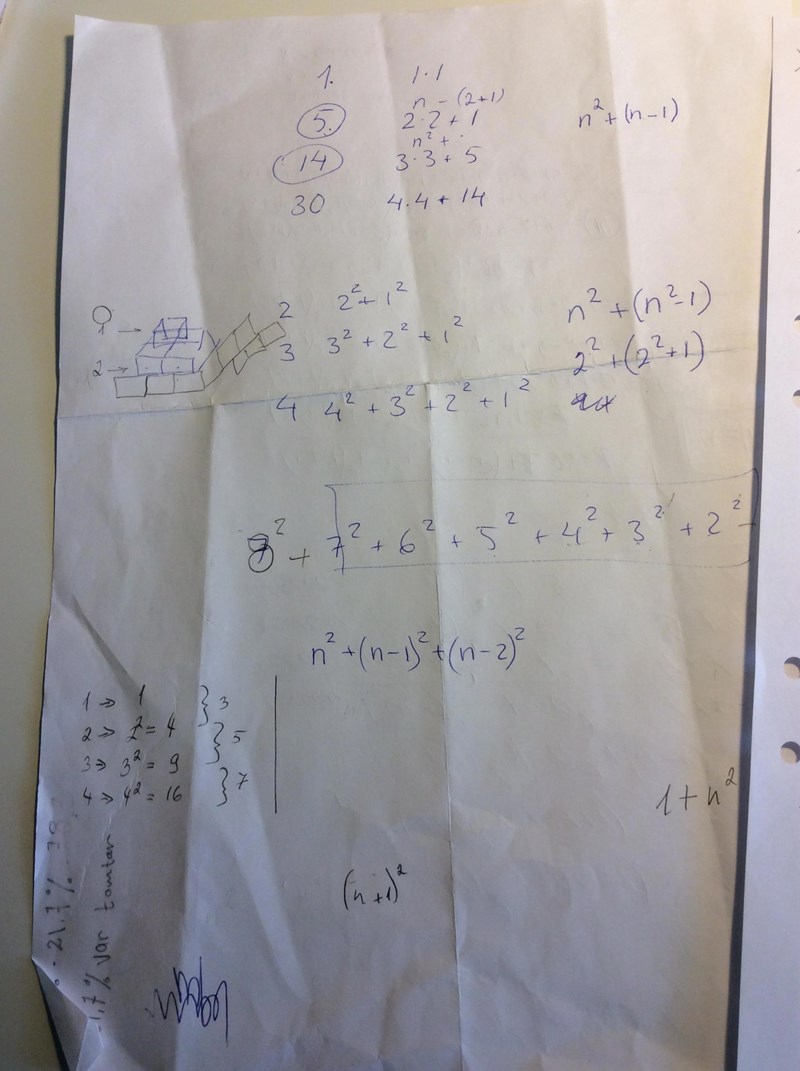 1. 1·1
n - (2+1)
5. 2·2 + 1 n² + (n-1)
n² +
14 3·3 + 5
30 4.4 + 14
2 2² + 1² n² + (n²-1)
1 →
3 3² + 2² + 1² 2² + (2²+1)
2 →
4 4² + 3² + 2² + 1²
8² + 7² + 6² + 5² + 4² + 3² + 2²
n² + (n-1)² + (n-2)²
1 ⇒ 1 } 3
2 ⇒ 2² = 4 } 5
3 ⇒ 3² = 9
4 ⇒ 4² = 16 } 7
1 + n²
(n+1)²
21.7%
1,7% var tomtar